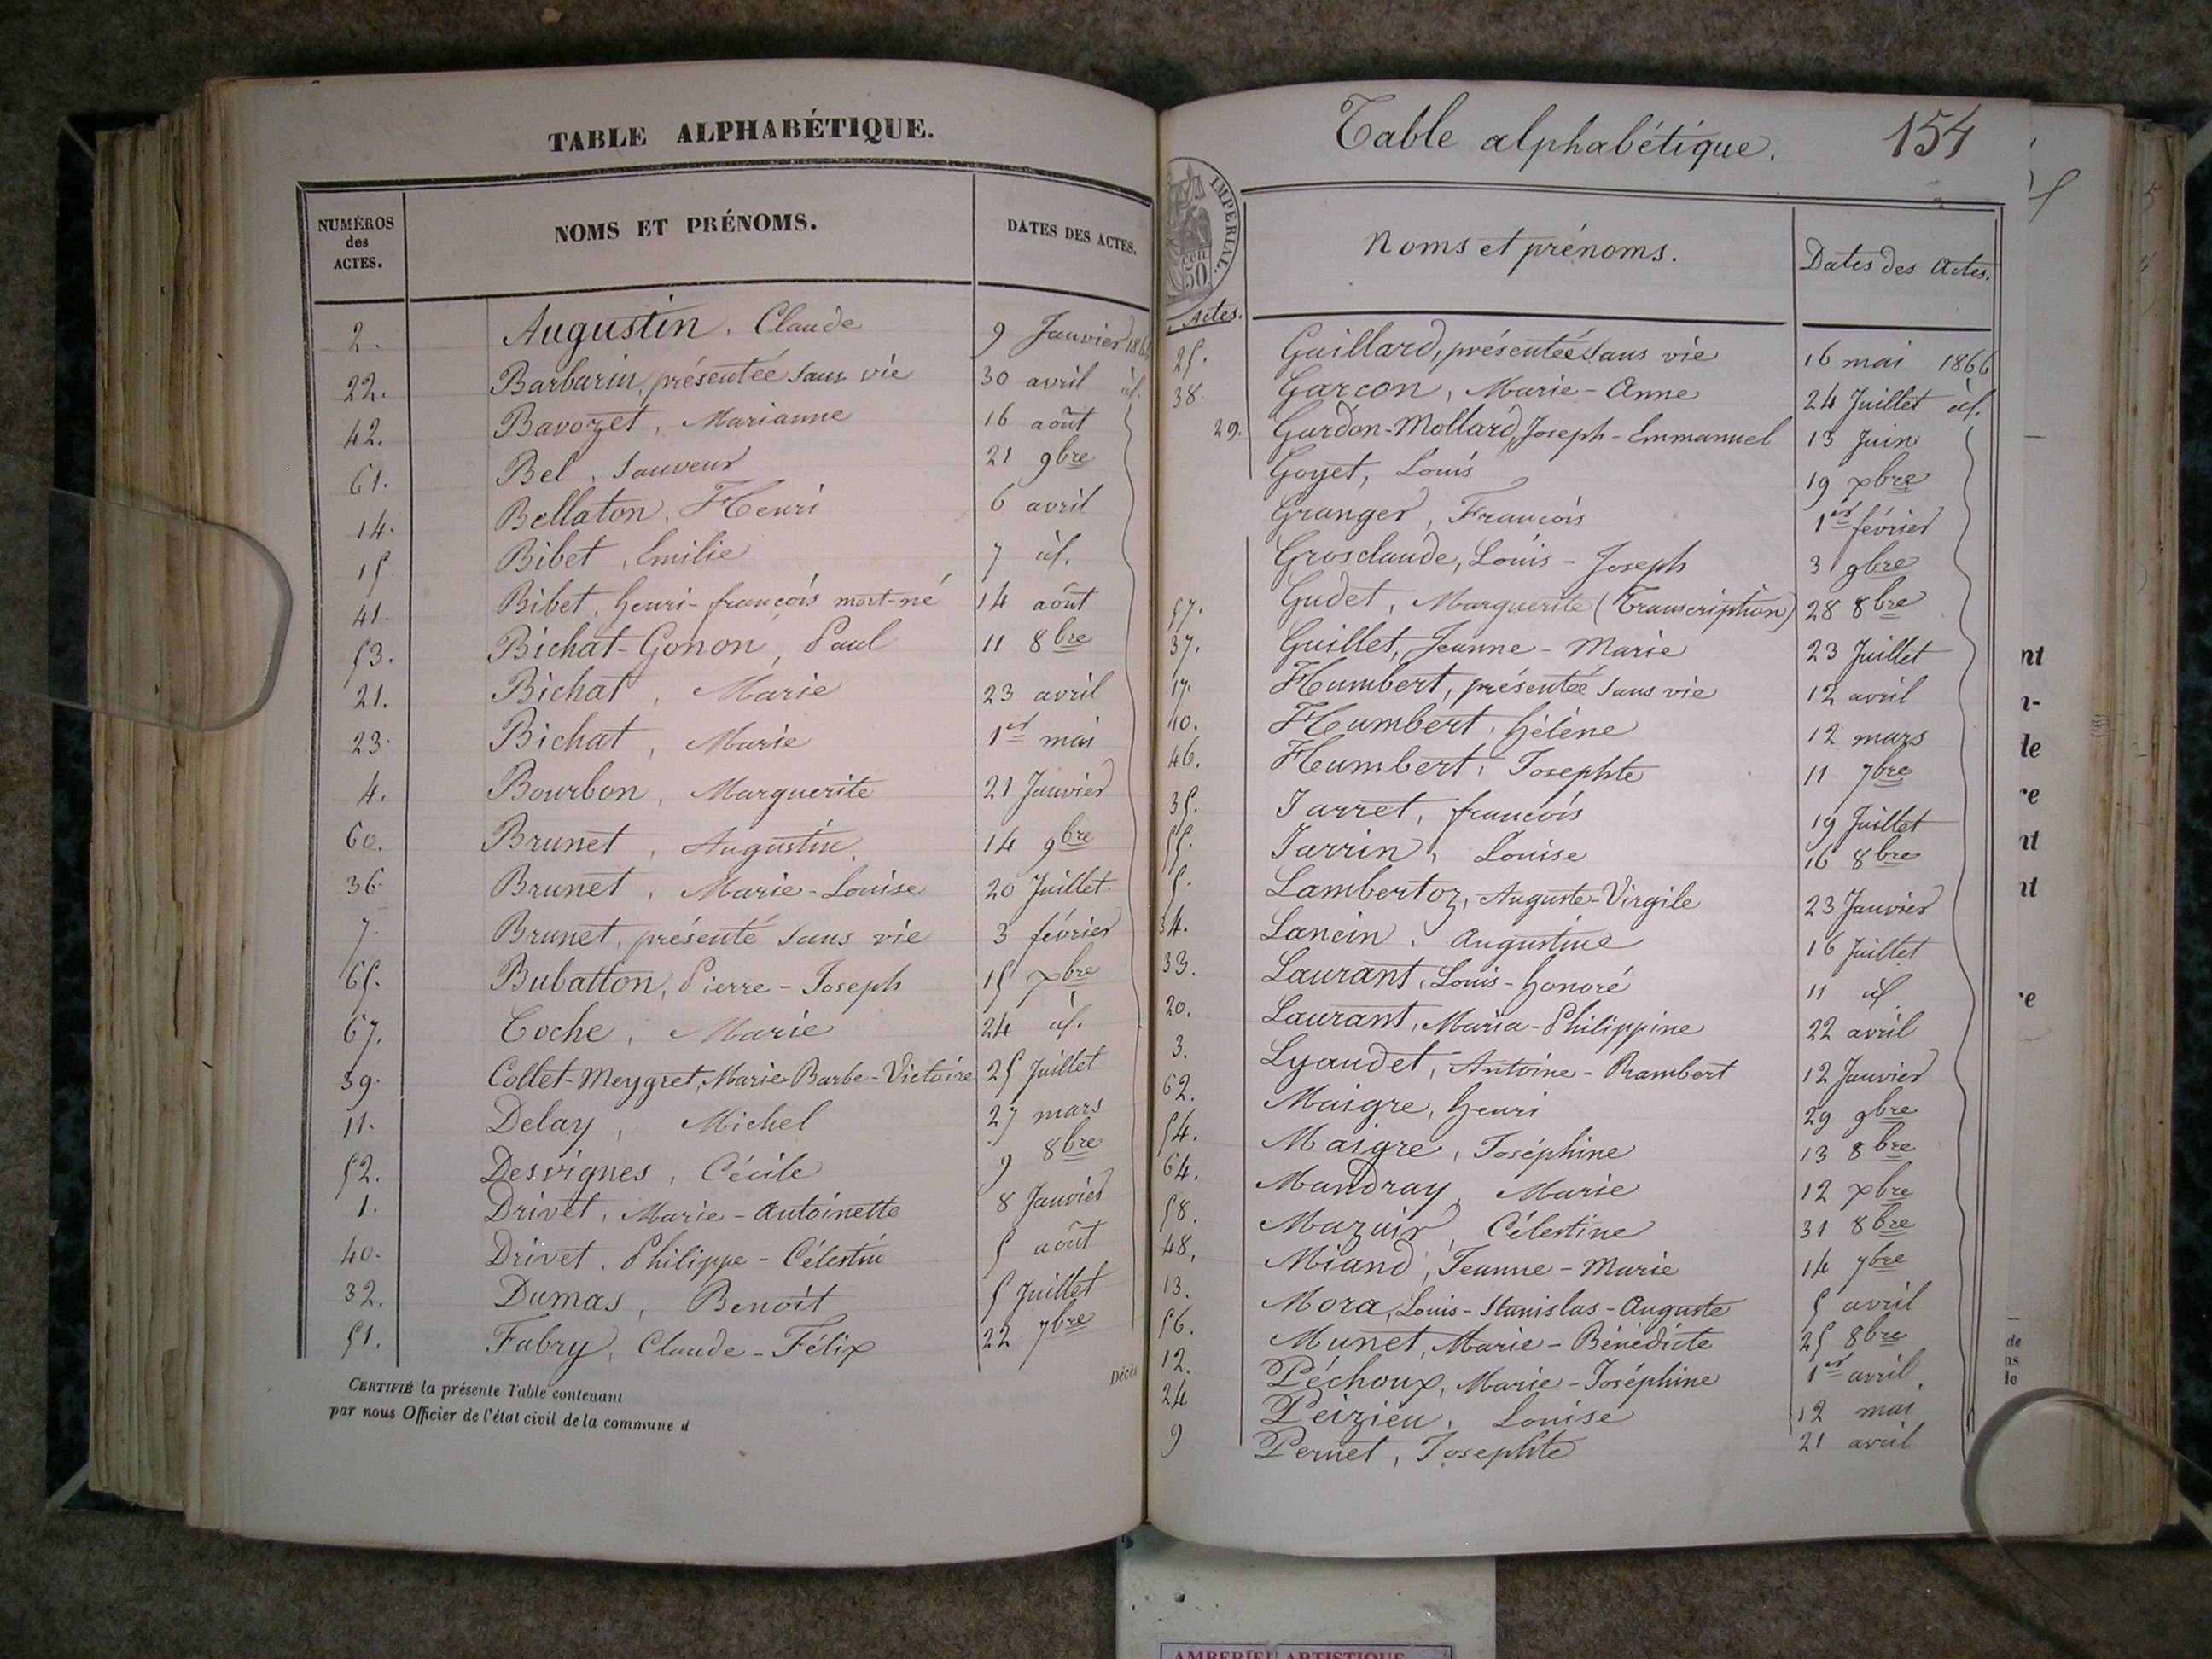 TABLE ALPHABÉTIQUE.
NUMÉROS des ACTES. NOMS ET PRÉNOMS. DATES DES ACTES.
2. Augustin, Claude 9 Janvier 1866
22. Barbarin, présentée sans vie 30 avril id.
42. Bavozet, Marianne 16 août
61. Bel, Sauveur 21 9bre
14. Bellaton, Henri 6 avril
15 Bibet, Emilie 7 id.
41. Bibet, henri-françois mort-né 14 août
53. Bichat-Gonon, Paul 11 8bre
21. Bichat, Marie 23 avril
23. Bichat, Marie 1er mai
4. Bourbon, Marguerite 21 Janvier
60. Brunet, Augustin 14 9bre
36. Brunet, Marie-Louise 20 Juillet.
7. Brunet, présenté sans vie 3 février
65. Bubatton, Pierre-Joseph 15 xbre
67. Coche, Marie 24 id.
39. Collet-Meygret, Marie-Barbe-Victoire 25 Juillet
11. Delay, Michel 27 mars
52. Desvignes, Cécile 9 8bre
1. Drivet, Marie-Antoinette 8 Janvier
40. Drivet, Philippe-Célestin 5 août
32. Dumas, Benoit 5 Juillet
51. Fabry, Claude-Félix 22 7bre
Décès
CERTIFIÉ la présente Table contenant
par nous Officier de l'état civil de la commune d
Table alphabétique. 154
IMPERIAL.
50
Actes. Noms et prénoms. Dates des Actes.
25. Gaillard, présentée sans vie 16 mai 1866
38. Garcon, Marie-Anne 24 Juillet id.
29. Gardon-Mollard, Joseph-Emmanuel 13 Juin
Goyet, Louis 19 xbre
Granger, François 1er février
Grosclaude, Louis-Joseph 3 9bre
57. Gudet, Marguerite (Transcription) 28 8bre
37. Guillet, Jeanne-Marie 23 Juillet
17. Humbert, présentée sans vie 12 avril
10. Humbert, hélène 12 mars
46. Humbert, Josephte 11 7bre
35. Jarret, françois 19 Juillet
55. Jarrin, Louise 16 8bre
5. Lambertoz, Auguste-Virgile 23 Janvier
34. Lancin, Augustine 16 Juillet
33. Laurant, Louis-honoré 11 id
20. Laurant, Maria-Philippine 22 avril
3. Lyaudet, Antoine-Rambert 12 Janvier
62. Maigre, henri 29 9bre
54. Maigre, Joséphine 13 8bre
64. Mandray, Marie 12 xbre
58. Mazuir, Célestine 31 8bre
48. Miand, Jeanne-Marie 14 7bre
13. Mora, Louis-Stanislas-Auguste 5 avril
56. Munet, Marie-Bénédicte 25 8bre
12. Péchoux, Marie-Joséphine 1er avril
24 Peizieu, Louise 12 mai
9 Pernet, Josephte 21 avril
AMBERIEU ARTISTIQUE